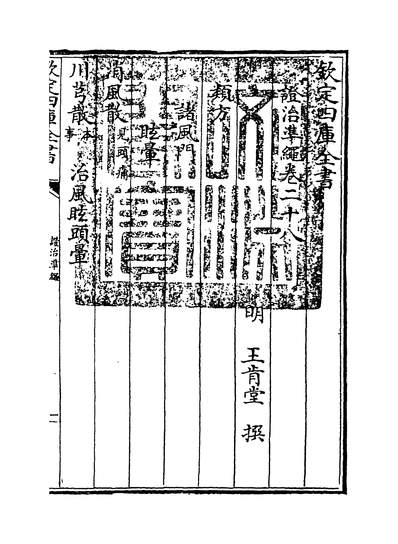 欽定四庫全書
證治準繩卷二十八
明 王肯堂 撰
類方
諸風門
眩暈
風散見頭痛
川芎散本事 治風眩頭暈
欽定四庫全書
證治準繩